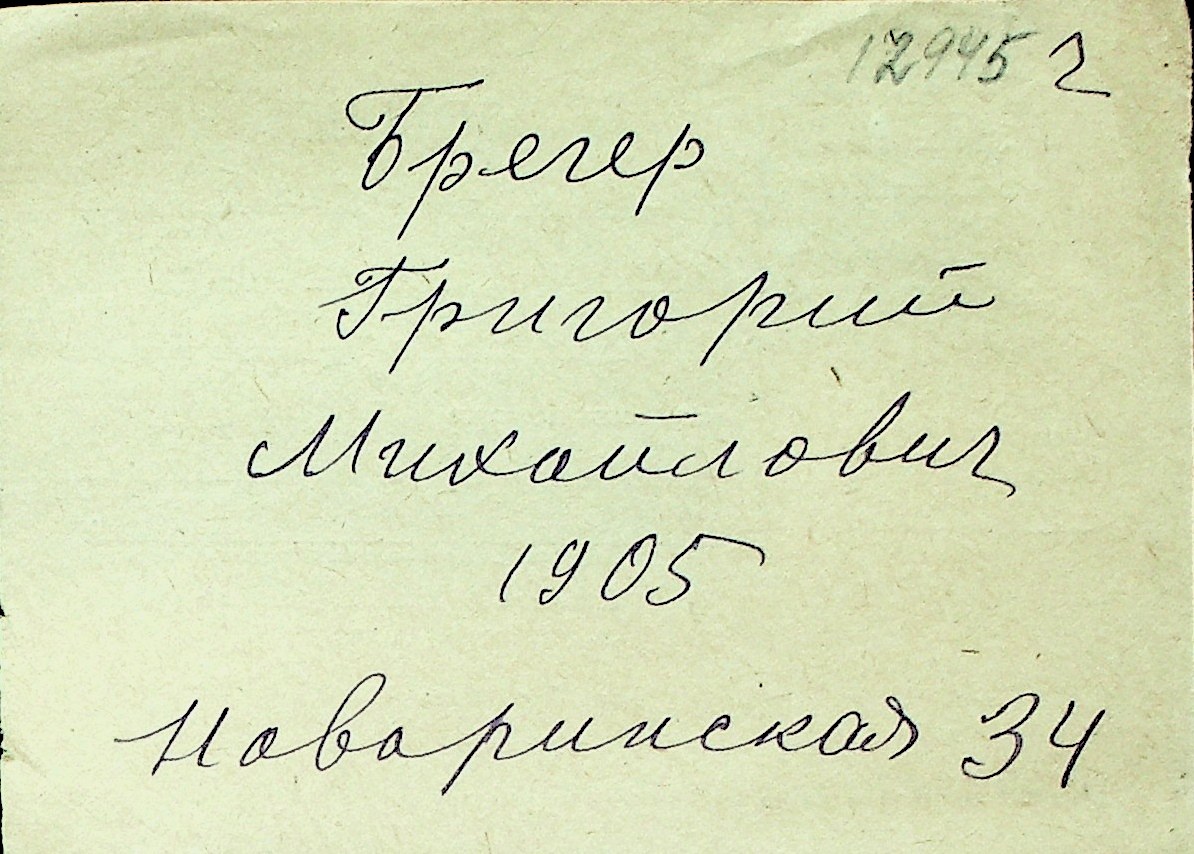 12945 2
Брегер
Григорий
Михайлович
1905
Наваринская 34